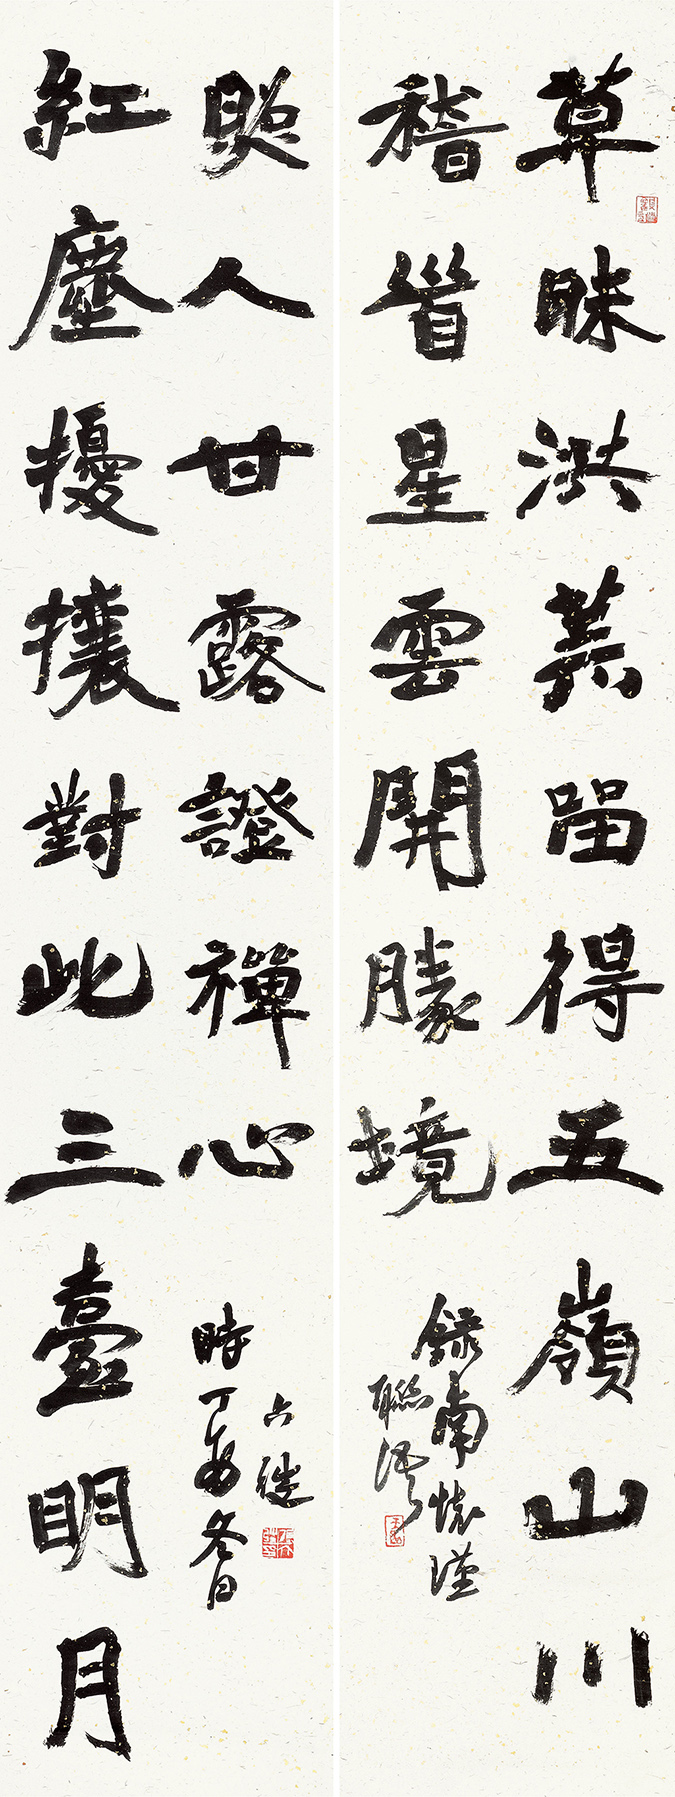 草昧洪荒留得五嶺山川
稽首星雲開勝境
錄南懷瑾
聯語
紅塵擾攘對此三臺明月
照人甘露證禪心
時丁酉冬日